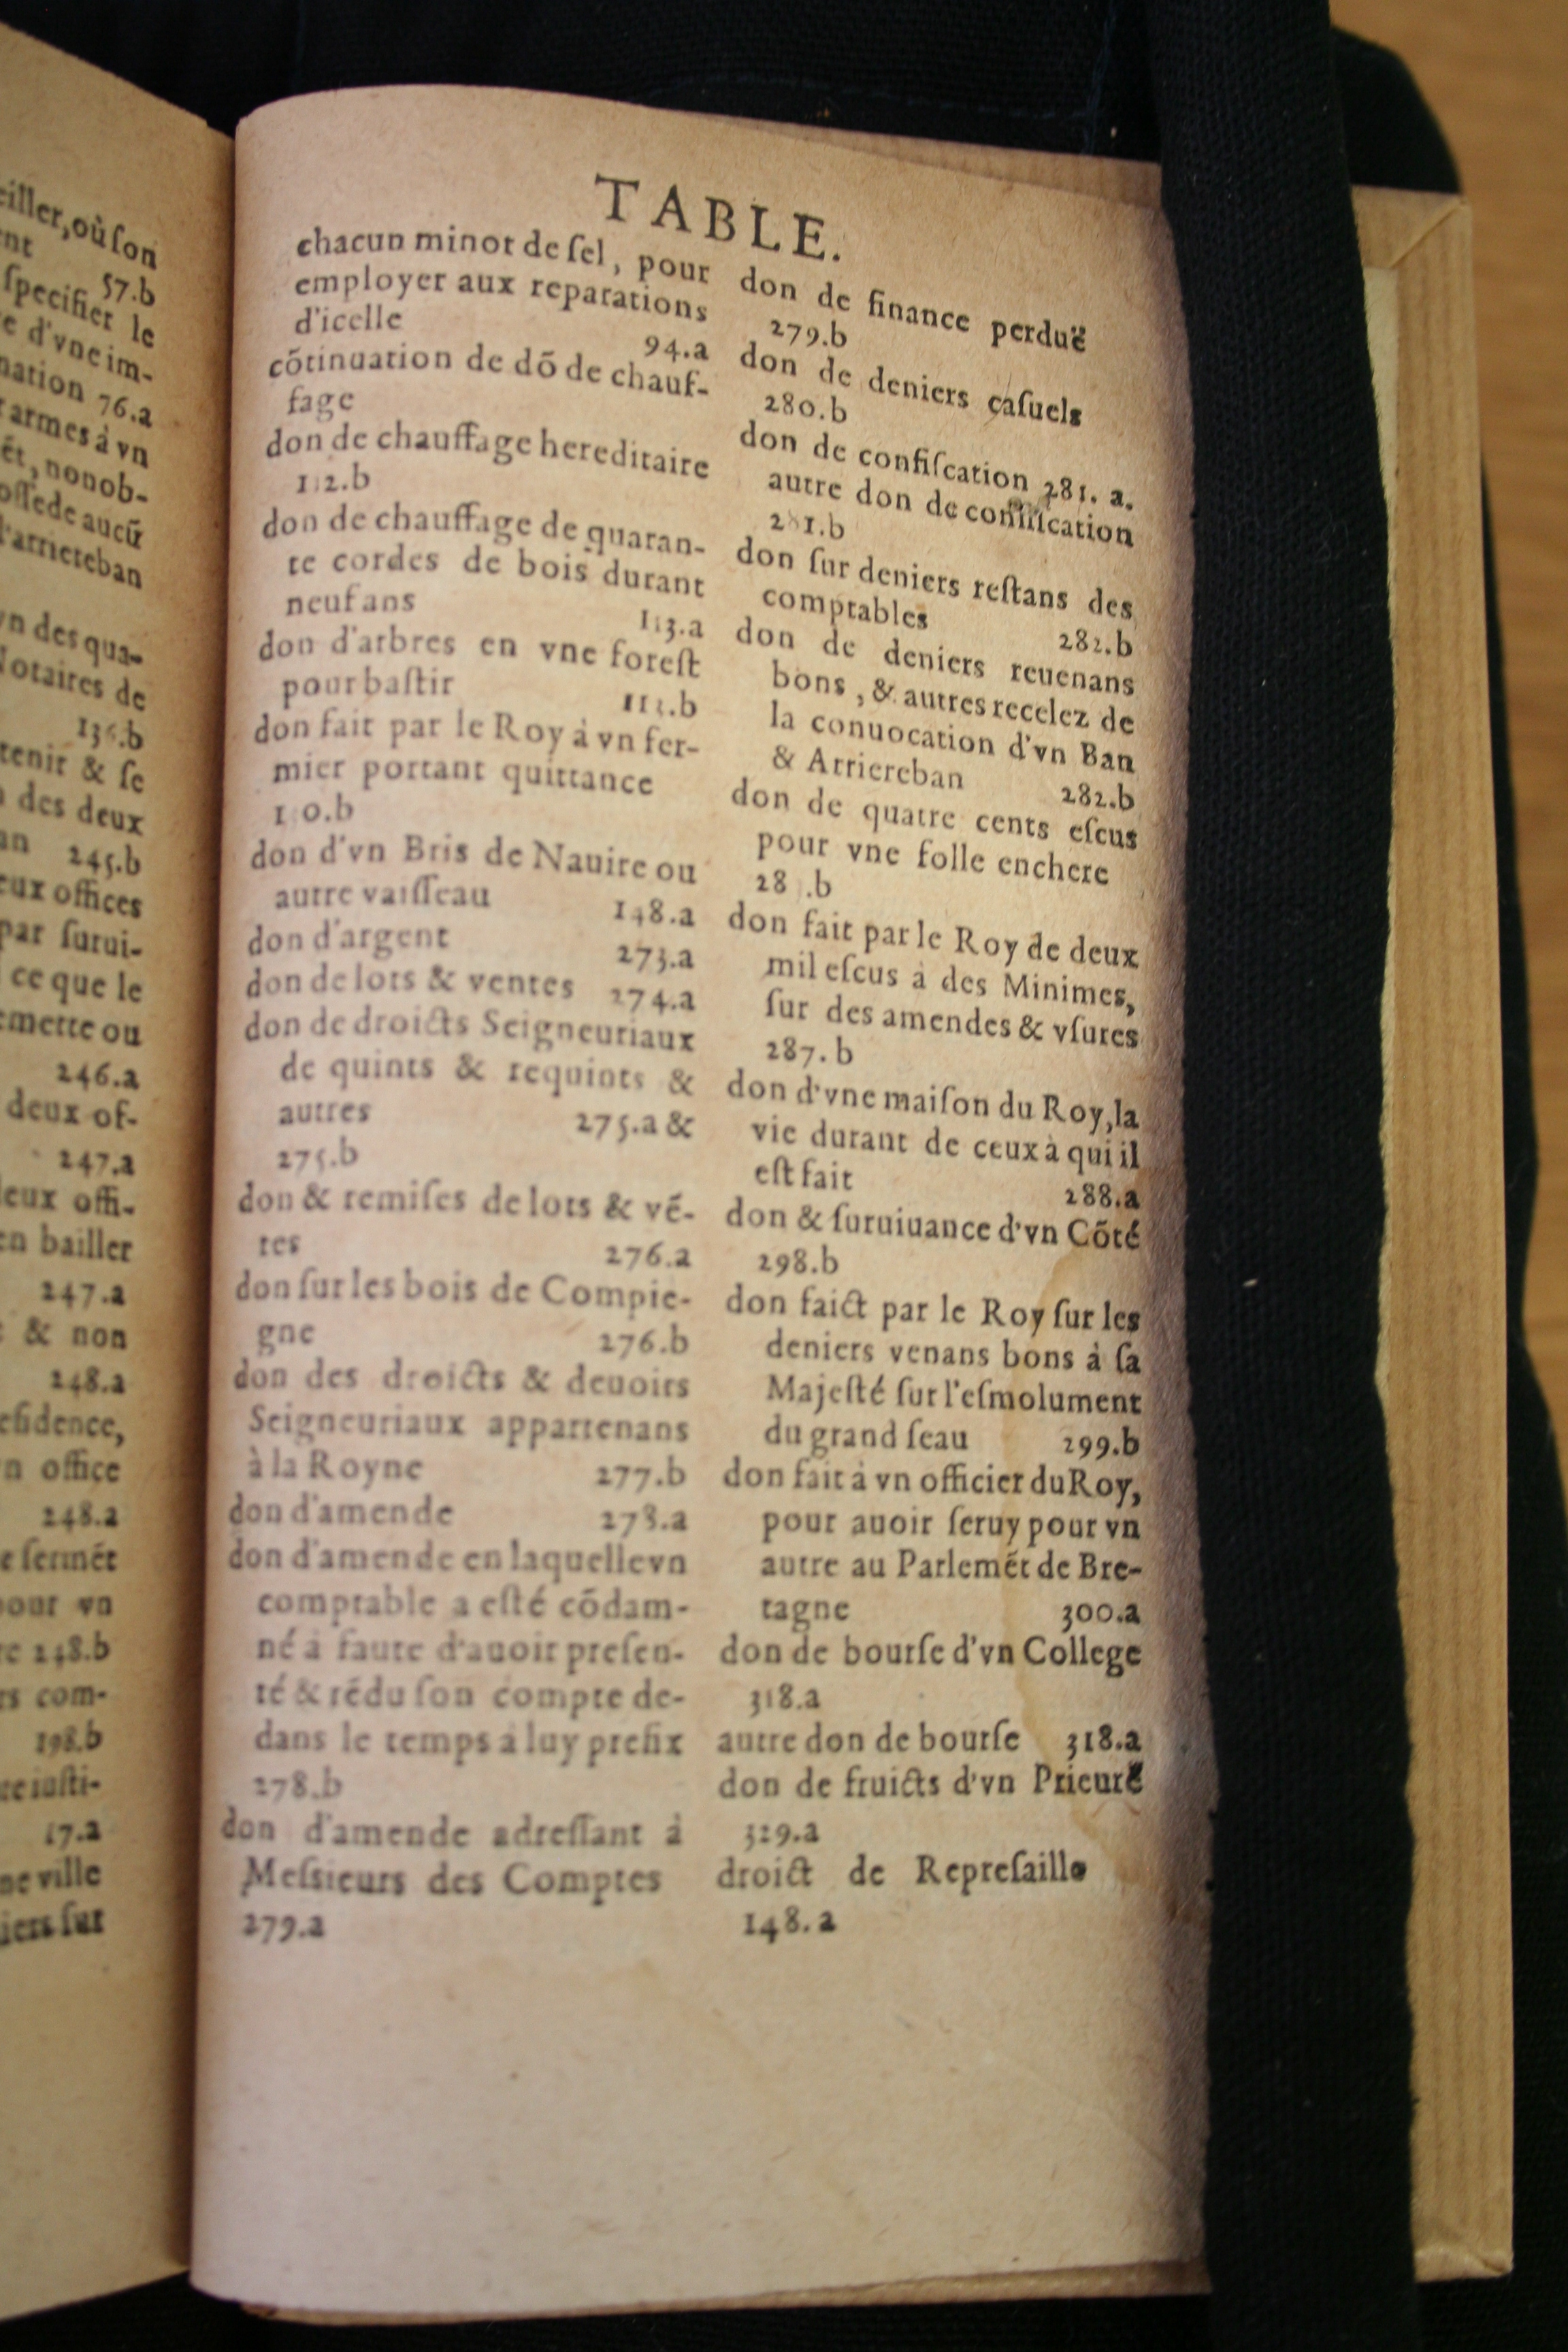 eiller, où ſon
ent 57.b
ſpecifier le
e d'vne im-
nation 76.a
armes à vn
nonob-
oſſede aucũ
l'arriereban
vn des qua-
Notaires de
136.b
tenir & ſe
des deux
an 245.b
eux offices
par ſurui-
ce que le
emette ou
246.a
deux of-
247.a
deux offi-
en bailler
247.a
& non
248.a
eſidence,
n office
248.a
ſermẽt
pour vn
248.b
rs com-
198.b
iuſti-
17.a
ne ville
iers ſur
TABLE.
chacun minot de ſel, pour
employer aux reparations
d'icelle 94.a
cõtinuation de dõ de chauf-
fage
don de chauffage hereditaire
112.b
don de chauffage de quaran-
te cordes de bois durant
neuf ans 113.a
don d'arbres en vne foreſt
pour baſtir 113.b
don fait par le Roy à vn fer-
mier portant quittance
don d'vn Bris de Nauire ou
autre vaiſſeau 148.a
don d'argent 273.a
don de lots & ventes 274.a
don de droicts Seigneuriaux
de quints & requints &
autres 275.a &
275.b
don & remiſes de lots & vẽ-
tes 276.a
don ſur les bois de Compie-
gne 276.b
don des droicts & deuoirs
Seigneuriaux appartenans
à la Royne 277.b
don d'amende 278.a
don d'amende en laquelle vn
comptable a eſté cõdam-
né à faute d'auoir preſen-
té & rẽdu ſon compte de-
dans le temps à luy prefix
278.b
don d'amende adreſſant à
Meſsieurs des Comptes
279.a
don de finance perduë
279.b
don de deniers caſuels
280.b
don de confiſcation 281. a.
autre don de confiſcation
281.b
don ſur deniers reſtans des
comptables 282.b
don de deniers reuenans
bons, & autres recelez de
la conuocation d'vn Ban
& Arriereban 282.b
don de quatre cents eſcus
pour vne folle enchere
don fait par le Roy de deux
mil eſcus à des Minimes,
ſur des amendes & vſures
287. b
don d'vne maiſon du Roy, la
vie durant de ceux à qui il
eſt fait 288.a
don & ſuruiuance d'vn Cõté
298.b
don faict par le Roy ſur les
deniers venans bons à ſa
Majeſté ſur l'eſmolument
du grand ſeau 299.b
don fait à vn officier du Roy,
pour auoir ſeruy pour vn
autre au Parlemẽt de Bre-
tagne 300.a
don de bourſe d'vn College
318.a
autre don de bourſe 318.a
don de fruicts d'vn Prieuré
329.a
droict de Repreſaille
148. a